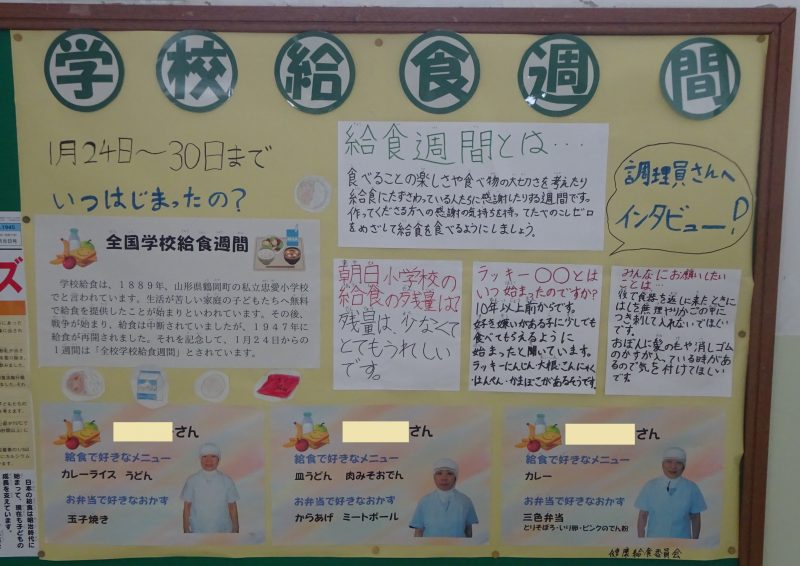 学校給食週間
1月24日～30日まで
いつはじまったの？
全国学校給食週間
学校給食は、1889年、山形県鶴岡町の私立忠愛小学校
でと言われています。生活が苦しい家庭の子どもたちへ無料
で給食を提供したことが始まりといわれています。その後、
戦争が始まり、給食は中断されていましたが、1947年に
給食が再開されました。それを記念して、1月24日からの
1週間は「全校学校給食週間」とされています。
給食週間とは…
食べることの楽しさや食べ物の大切さを考えたり
給食にたずさわっている人たちに感謝したりする週間です。
作ってくださる方への感謝の気持ちを持ってたべのこしゼロ
をめざして給食を食べるようにしましょう。
調理員さんへ
インタビュー！
朝日小学校の
給食の残量は？
残量は、少なくて
とてもうれしいです。
ラッキー〇〇とは
いつ始まったのですか？
10年以上前からです。
好き嫌いがある子に少しでも
食べてもらえるように
始まったと聞いています。
ラッキーにんじん・大根・こんにゃく
はんぺん・かまぼこがあるそうです。
みんなにお願いしたい
ことは…
後で食器を返しに来たときに
はしを無理やりかごの中に
つき刺して入れないでほしい
です。
おぼんに髪の毛や消しゴム
のかすが入っている時があ
るので気を付けてほしい
です
さん
給食で好きなメニュー
カレーライス うどん
お弁当で好きなおかず
玉子焼き
さん
給食で好きなメニュー
皿うどん 肉みそおでん
お弁当で好きなおかず
からあげ ミートボール
さん
給食で好きなメニュー
カレー
お弁当で好きなおかず
三色弁当
とりそぼろ・いり卵・ピンクのでん粉
健康給食委員会
日本の給食は明治時代に
始まって、現在も子どもの
成長を支えています。